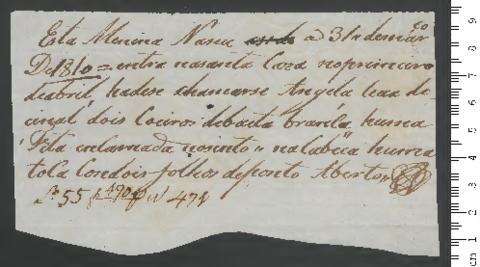 Esta Menina Nasceu a 31 de março
De 1810 = entra nasanta Caza noprimeiro
deabril, hade se chamarse Angela Leva de
anval dois Coeiros debaeta branca huma
Fita encarnada nosinto = nacabeca huma
tola Com dois folhos deponto Abertos
L.º 55 f. 190 f. 471
9
8
7
6
5
4
3
2
1
cm